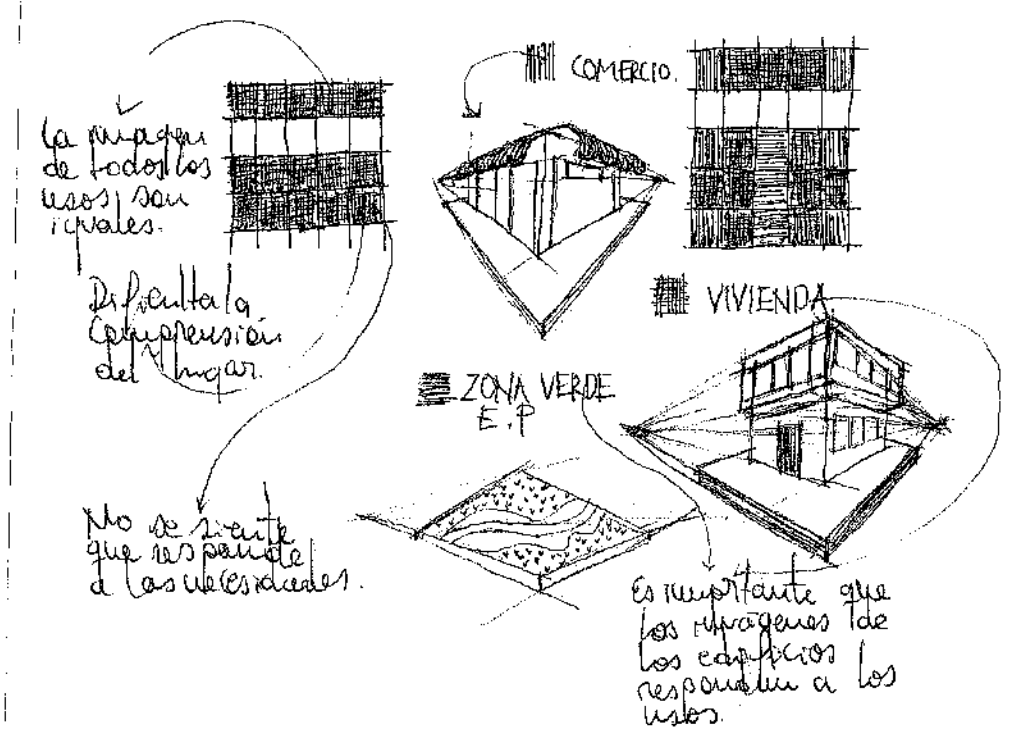 La imagen
de todos los
usos son
iguales.
Dificulta la
comprensión
del lugar.
No se siente
que responde
a las necesidades.
COMERCIO.
VIVIENDA
ZONA VERDE
E.P
Es importante que
las imágenes de
los edificios
respondan a los
usos.